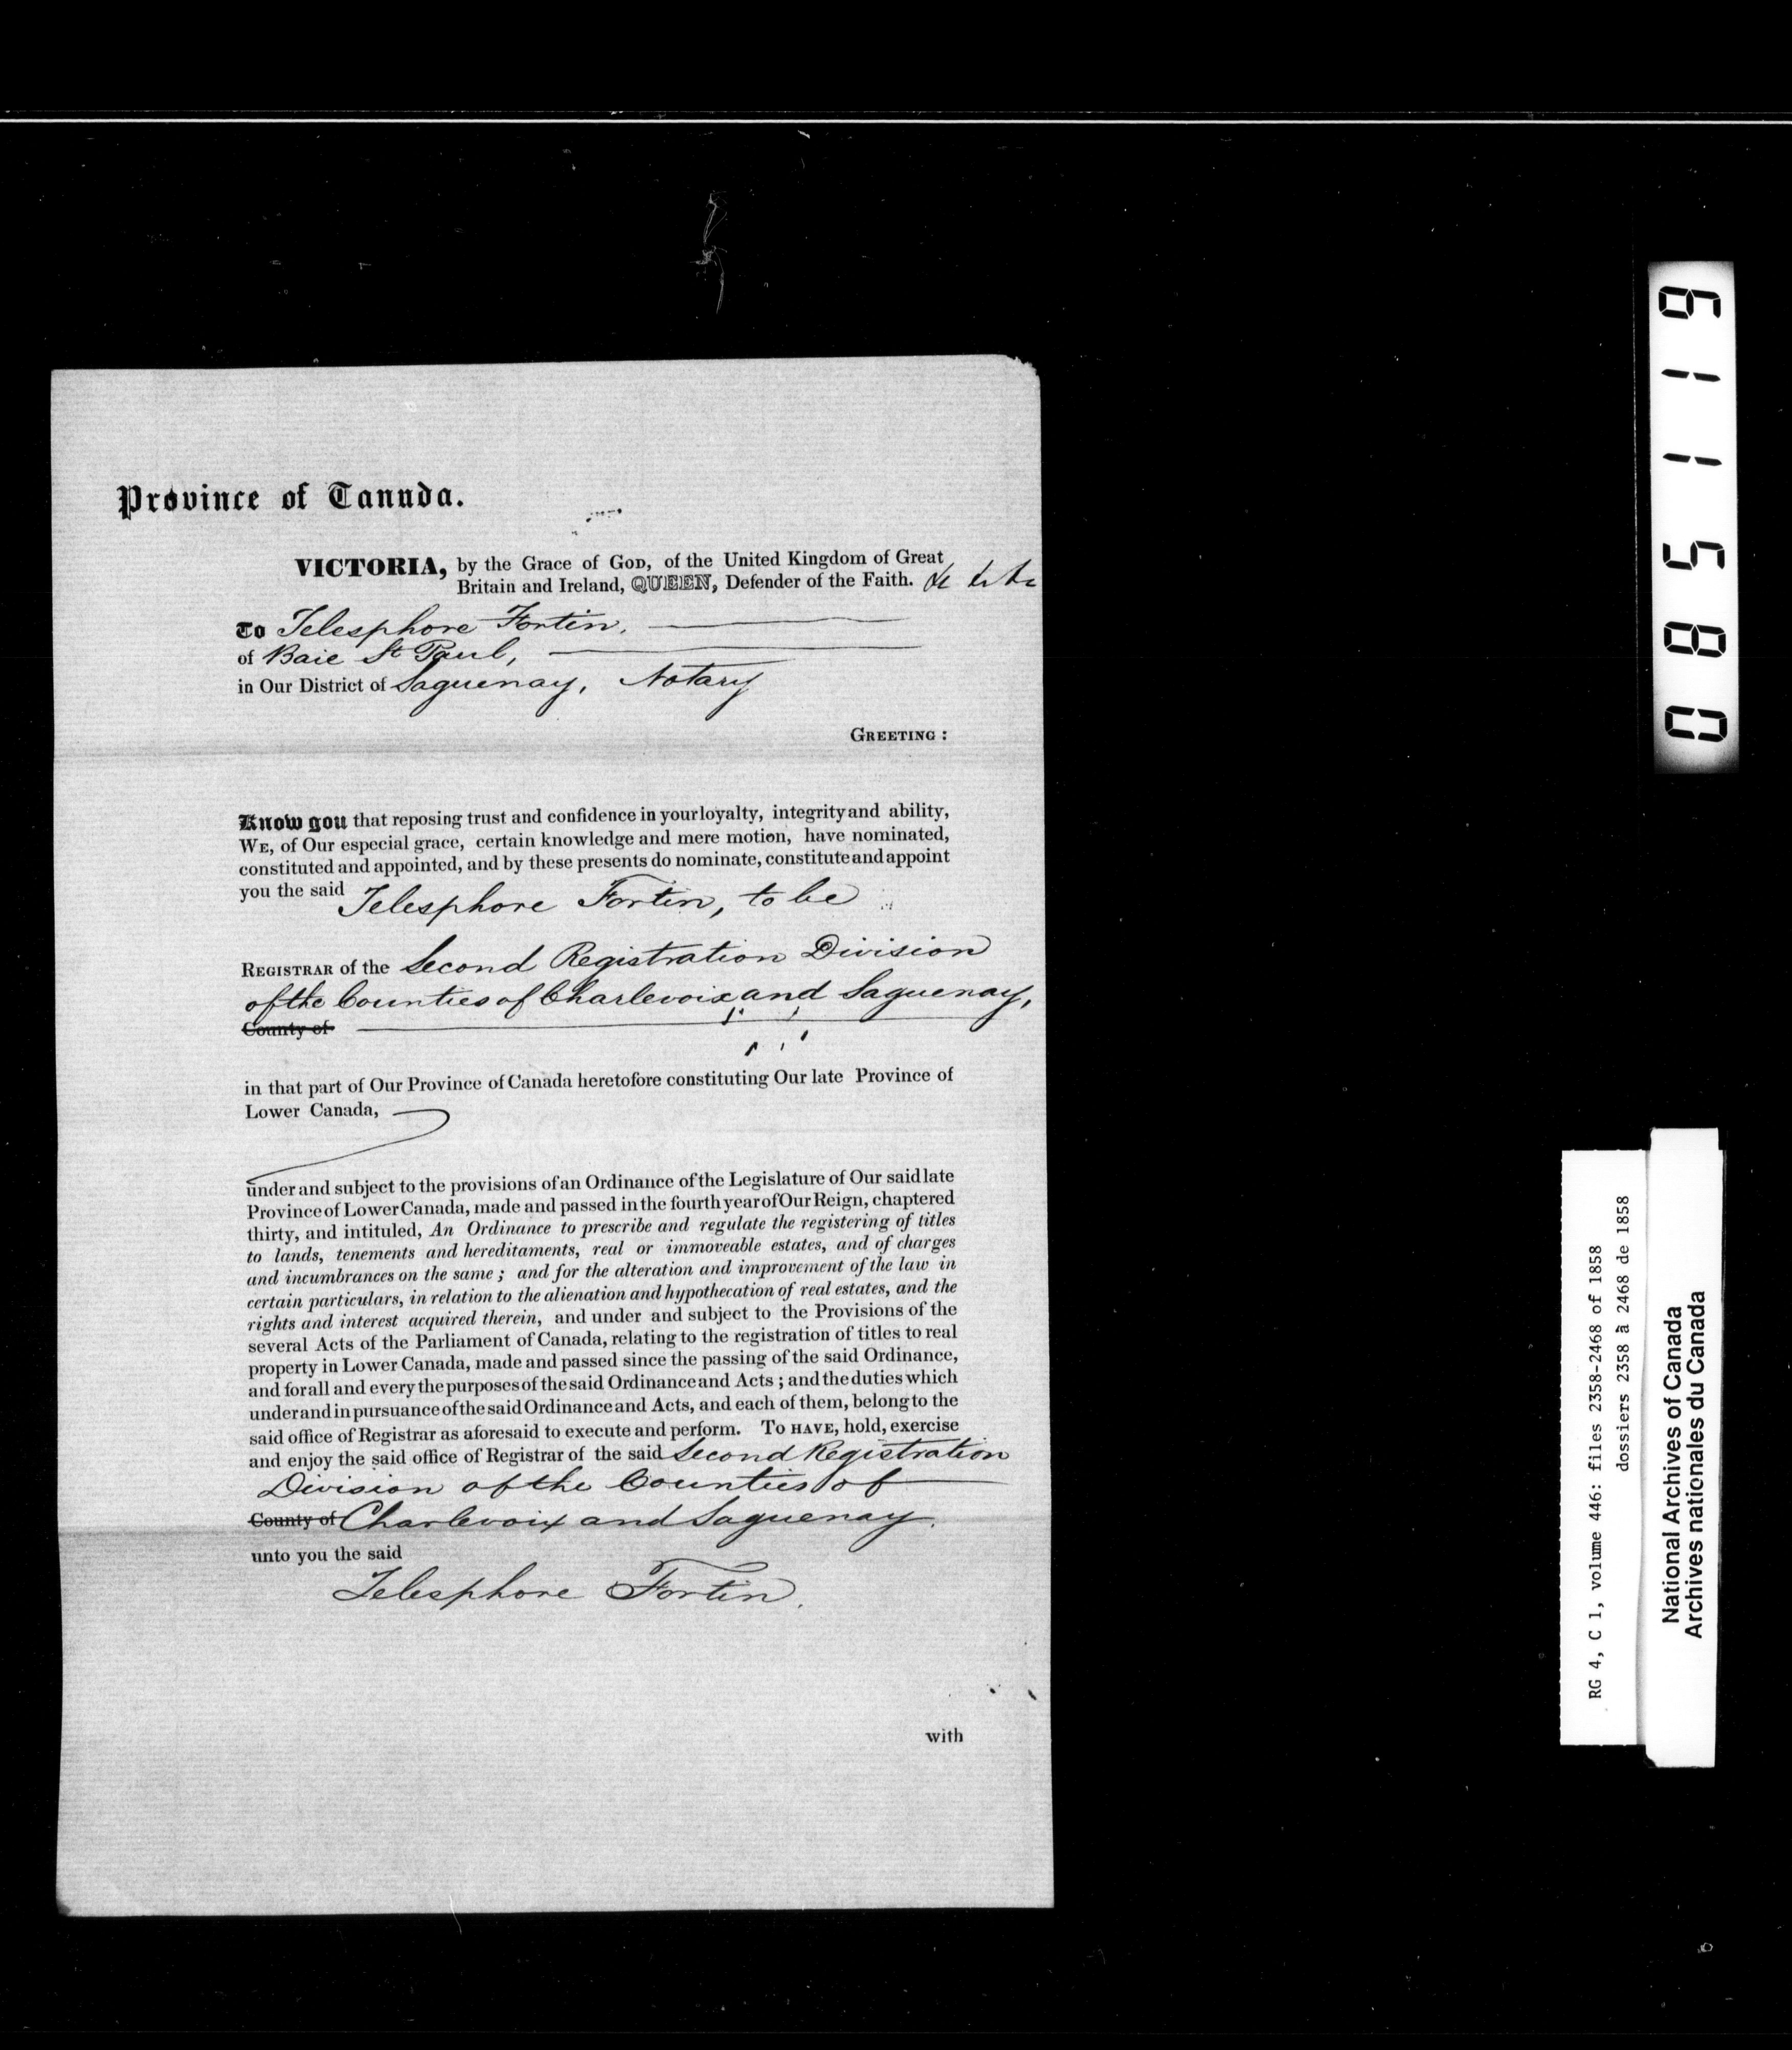 Province of Canada.
VICTORIA, by the Grace of GOD, of the United Kingdom of Great
Britain and Ireland, QUEEN, Defender of the Faith. &c &c &c
To Telesphore Fortin,
of Baie St Paul,
in Our District of Saguenay, Notary
GREETING:
Know you that reposing trust and confidence in your loyalty, integrity and ability,
WE, of Our especial grace, certain knowledge and mere motion, have nominated,
constituted and appointed, and by these presents do nominate, constitute and appoint
you the said Telesphore Fortin, to be
REGISTRAR of the Second Registration Division
of the Counties of Charlevoix and Saguenay,
County of
in that part of Our Province of Canada heretofore constituting Our late Province of
Lower Canada,
under and subject to the provisions of an Ordinance of the Legislature of Our said late
Province of Lower Canada, made and passed in the fourth year of Our Reign, chaptered
thirty, and intituled, An Ordinance to prescribe and regulate the registering of titles
to lands, tenements and hereditaments, real or immoveable estates, and of charges
and incumbrances on the same; and for the alteration and improvement of the law in
certain particulars, in relation to the alienation and hypothecation of real estates, and the
rights and interest acquired therein, and under and subject to the Provisions of the
several Acts of the Parliament of Canada, relating to the registration of titles to real
property in Lower Canada, made and passed since the passing of the said Ordinance,
and for all and every the purposes of the said Ordinance and Acts; and the duties which
under and in pursuance of the said Ordinance and Acts, and each of them, belong to the
said office of Registrar as aforesaid to execute and perform. To HAVE, hold, exercise
and enjoy the said office of Registrar of the said Second Registration
Division of the Counties of
County of Charlevoix and Saguenay.
unto you the said
Telesphore Fortin.
with
085119
RG 4, C 1, volume 446: files 2358-2468 of 1858
dossiers 2358 à 2468 de 1858
National Archives of Canada
Archives nationales du Canada